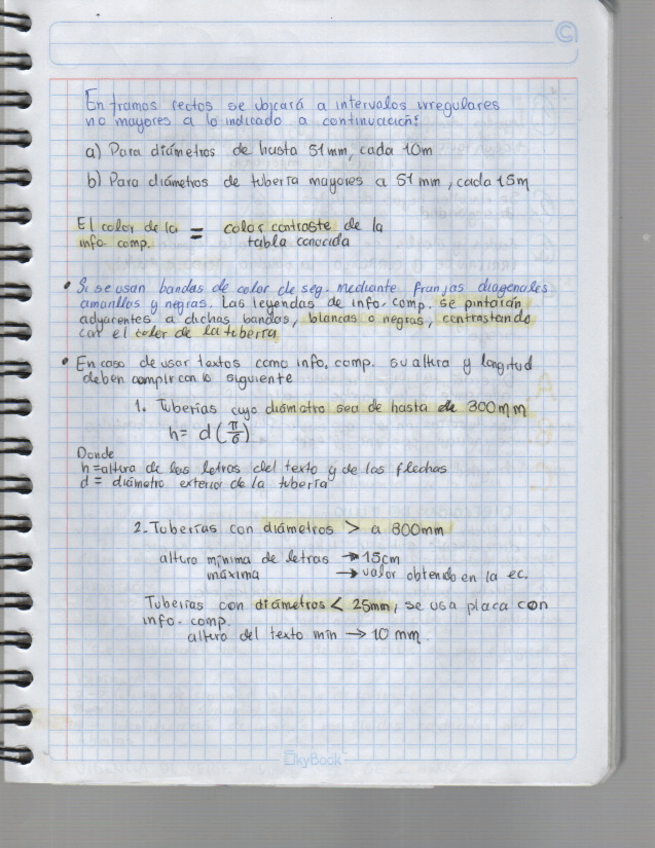 En tramos rectos se ubicará a intervalos irregulares
no mayores a lo indicado a continuación:
a) Para diámetros de hasta 51 mm, cada 10m
b) Para diámetros de tubería mayores a 51 mm, cada 15m
El color de la = color contraste de la
info. comp. tabla conocida
• Si se usan bandas de color de seg. mediante franjas diagonales
amarillas y negras. Las leyendas de info. comp. se pintarán
adyacentes a dichas bandas, blancas o negras, contrastando
con el color de la tubería
• En caso de usar textos como info. comp. su altura y longitud
deben cumplir con lo siguiente
1. Tuberías cuyo diámetro sea de hasta de 300mm
h= d(π/6)
Donde
h = altura de las letras del texto y de las flechas
d = diámetro exterior de la tubería
2. Tuberías con diámetros > a 300mm
altura mínima de letras → 15cm
máxima → valor obtenido en la ec.
Tuberías con diámetros < 25mm, se usa placa con
info. comp.
altura del texto min → 10 mm.
SkyBook